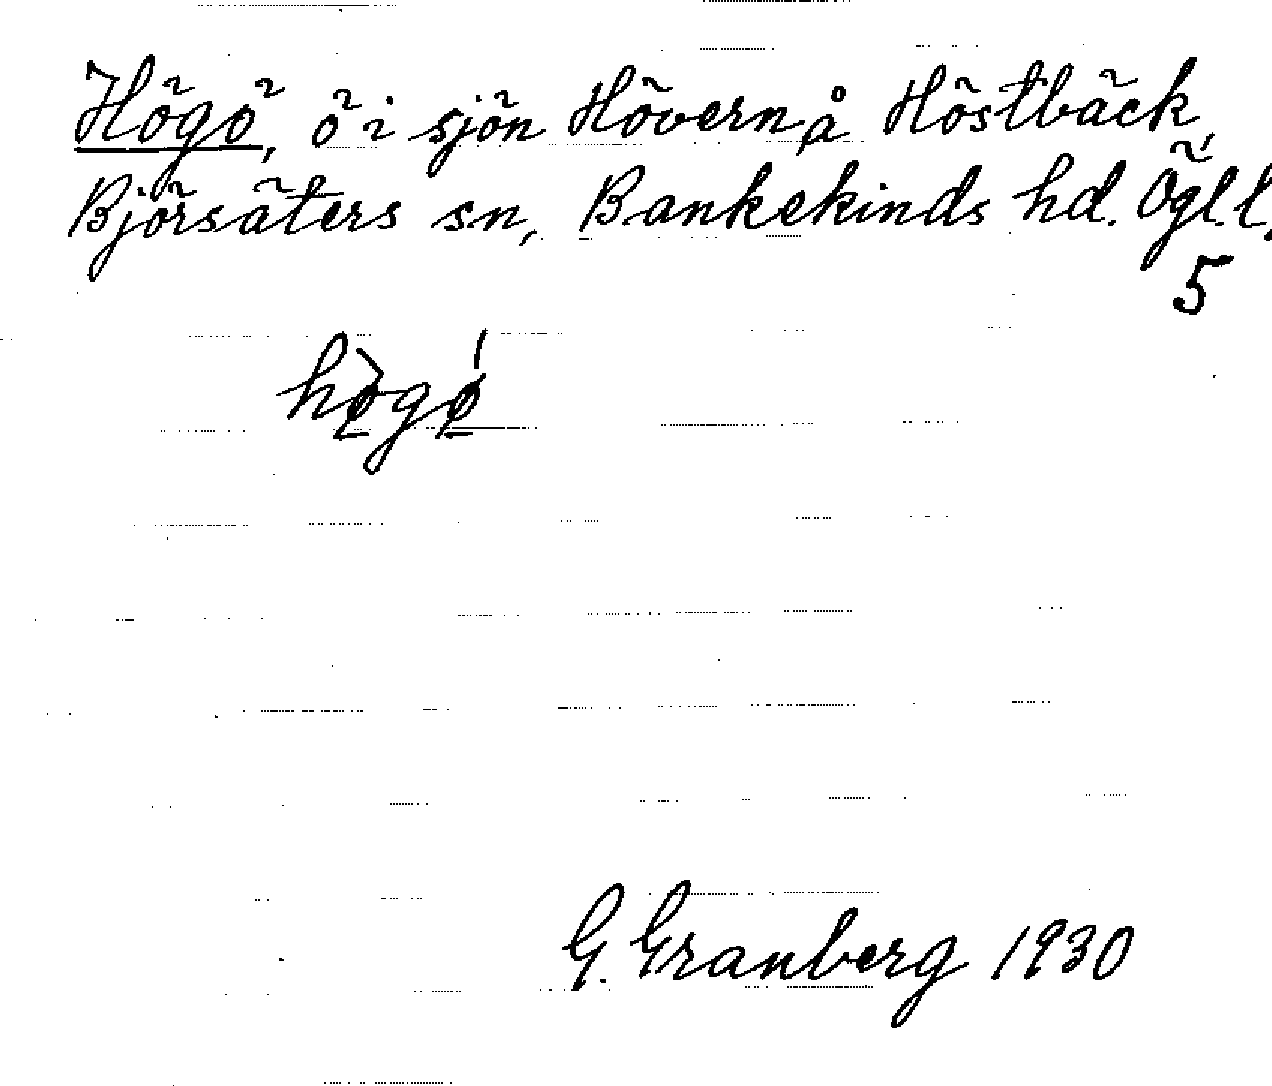 Högö, ö i sjön Hövern å Höstbäck,
Björsäters sn, Bankekinds hd. Ögl. l.
5
G. Granberg 1930